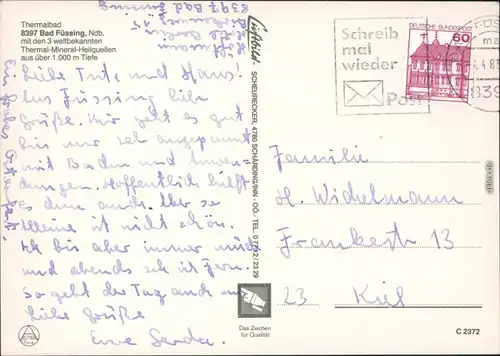 Thermalbad
8397 Bad Füssing, Ndb.
mit den 3 weltbekannten
Thermal-Mineral-Heilquellen
aus über 1.000 m Tiefe
8397 Bad
Füssing
Liebe Tute und Hans!
Aus Füssing liebe
Grüße. Mir geht es gut
bin nur sehr angespannt
mit Baden und Anwen-
dungen. Hoffentlich hilft
es dann auch. Aber so
alleine ist nicht schön.
Ich bin aber immer müde
und abends seh ich Fern.
So geht der Tag auch rum
Liebe Grüße
Eure Gerda.
Luftbild:
SCHEURECKER, 4780 SCHÄRDING/INN - OÖ - TEL. 07712/2329
Das Zeichen
für Qualität
Schreib
mal
wieder
Post
DEUTSCHE BUNDESPOST
60
839
Familie
H. Wichelmann
Frankestr 13
23 Kiel
C 2372